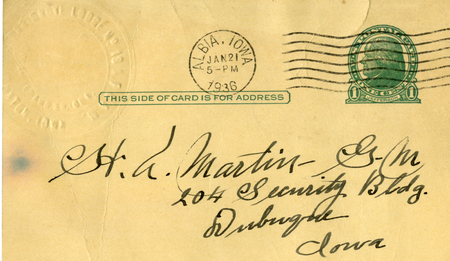 ALBIA, IOWA
JAN 21
5-PM
1936
THIS SIDE OF CARD IS FOR ADDRESS
1 1
H. L. Martin G.M
204 Security Bldg.
Dubuque
Iowa